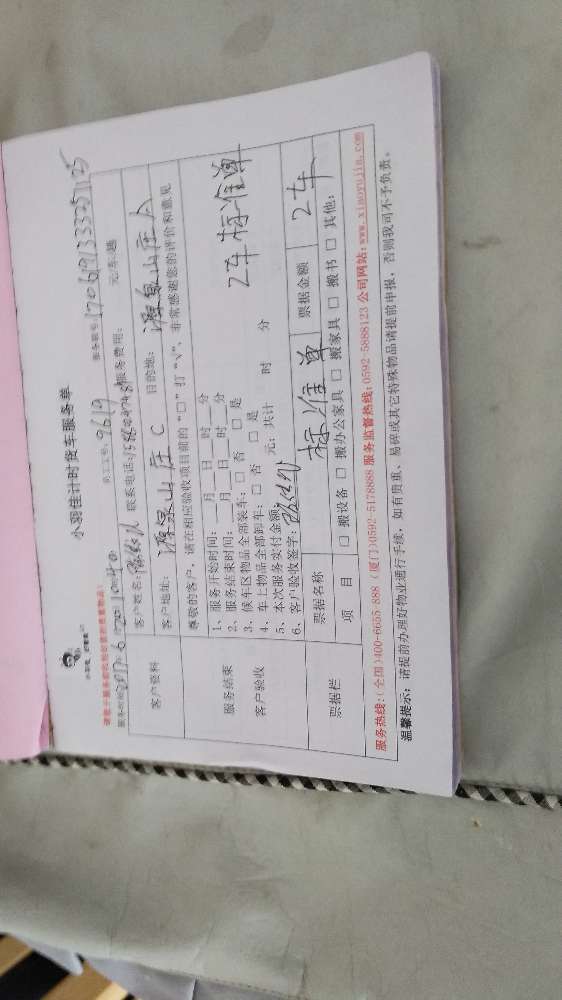 小羽佳计时货车服务单
员工工号: 9619 服务联号: 170619133325125
联系电话: 服务费用: 元/车/趟
客户资料
客户姓名:
客户地址: 源泉山庄 C 目的地: 源泉山庄 A
尊敬的客户,请在相应验收项目前的“□”打“√”,非常感谢您的评价和意见
服务结束
客户验收
1、服务开始时间:__月__日__时__分
2、服务结束时间:__月__日__时__分
3、候车区物品全部装车: □ 否 □ 是
4、车上物品全部卸车: □ 否 □ 是
5、本次服务实付金额 元; 共计 时 分
6、客户验收签字:
2车标准单
票据栏
票据名称 标准单 票据金额 2车
项 目 □ 搬设备 □ 搬办公家具 □ 搬家具 □ 搬书 □ 其他:
服务热线:(全国)400-6655-888 (厦门)0592-5178888 服务监督热线:0592-5888123 公司网站:www.xiaoyujia.com
温馨提示: 请提前办理好物业通行手续, 如有贵重、易碎或其它特殊物品请提前申报, 否则我司不予负责。